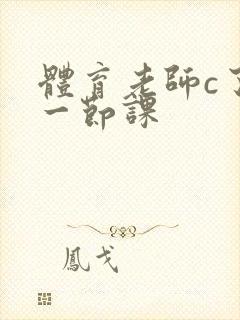 體育老師c了
一節課
鳳戈